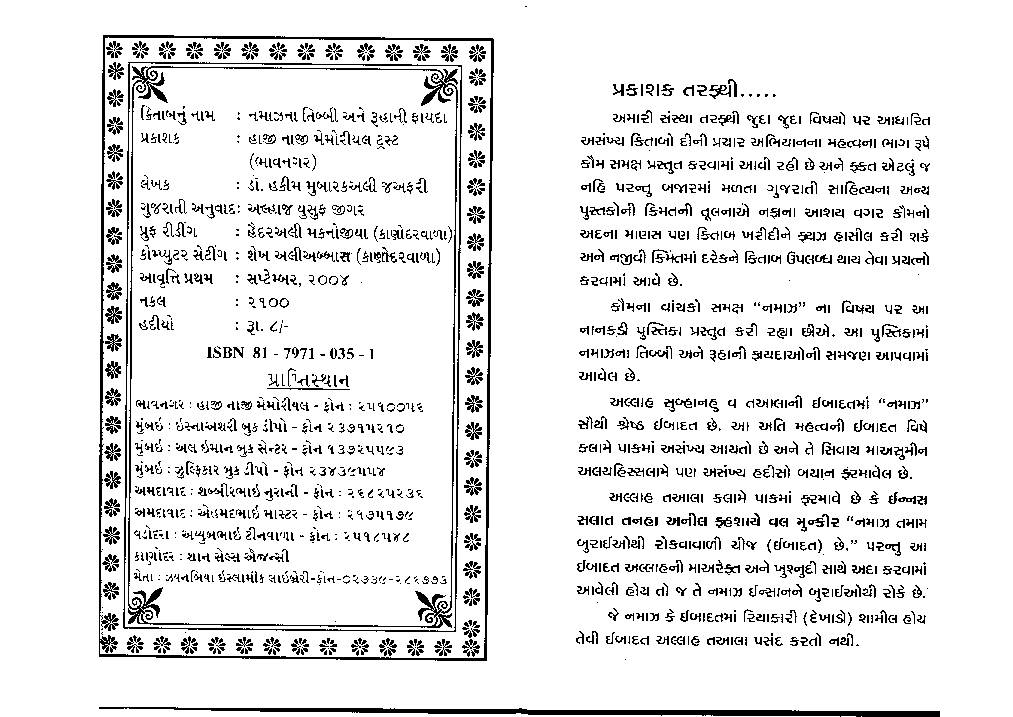 કિતાબનું નામ : નમાઝના તિબ્બી અને રૂહાની ફાયદા
પ્રકાશક : હાજી નાજી મેમોરીયલ ટ્રસ્ટ
(ભાવનગર)
લેખક : ડૉ. હકીમ મુબારકઅલી જઅફરી
ગુજરાતી અનુવાદ: અલ્હાજ યુસુફ જીગર
પ્રુફ રીડીંગ : હૈદરઅલી મકનોજીયા (કાણોદરવાળા)
કોમ્પ્યુટર સેટીંગ : શેખ અલીઅબ્બાસ (કાણોદરવાળા)
આવૃત્તિ પ્રથમ : સપ્ટેમ્બર, ૨૦૦૪
નકલ : ૨૧૦૦
હદીયો : રૂા. ૮/-
ISBN 81 - 7971 - 035 - 1
પ્રાપ્તિસ્થાન
ભાવનગર : હાજી નાજી મેમોરીયલ - ફોન : ૨૫૧૦૦૫૬
મુંબઇ : ઇસ્નાઅશરી બુક ડીપો - ફોન ૨૩૭૧૫૨૧૦
મુંબઇ : અલ ઇમાન બુક સેન્ટર - ફોન ૧૩૭૨૫૫૯૩
મુંબઇ : ઝુલ્ફિકાર બુક ડીપો - ફોન ૨૩૪૩૯૫૫૪
અમદાવાદ : શબ્બીરભાઇ નુરાની - ફોન : ૨૬૮૨૫૨૩૬
અમદાવાદ : એહમદભાઇ માસ્ટર - ફોન : ૨૧૭૫૧૭૯
વડોદરા : અય્યુબભાઇ ટીનવાળા - ફોન : ૨૫૧૮૫૪૮
કાણોદર : શાન સેલ્સ એજન્સી
મેતા : ઝયનબિયા ઇસ્લામીક લાઇબ્રેરી-ફોન-૦૨૭૩૯-૨૮૬૭૭૩
પ્રકાશક તરફથી.....
અમારી સંસ્થા તરફથી જુદા જુદા વિષયો પર આધારિત
અસંખ્ય કિતાબો દીની પ્રચાર અભિયાનના મહત્વના ભાગ રૂપે
કૌમ સમક્ષ પ્રસ્તુત કરવામાં આવી રહી છે અને ફકત એટલું જ
નહિ પરન્તુ બજારમાં મળતા ગુજરાતી સાહિત્યના અન્ય
પુસ્તકોની કિંમતની તૂલનાએ નફાના આશય વગર કૌમનો
અદના માણસ પણ કિતાબ ખરીદીને ફયઝ હાસીલ કરી શકે
અને નજીવી કિંમતમાં દરેકને કિતાબ ઉપલબ્ધ થાય તેવા પ્રયત્નો
કરવામાં આવે છે.
કૌમના વાંચકો સમક્ષ “નમાઝ” ના વિષય પર આ
નાનકડી પુસ્તિકા પ્રસ્તુત કરી રહ્યા છીએ. આ પુસ્તિકામાં
નમાઝના તિબ્બી અને રૂહાની ફાયદાઓની સમજણ આપવામાં
આવેલ છે.
અલ્લાહ સુબ્હાનહુ વ તઆલાની ઈબાદતમાં “નમાઝ”
સૌથી શ્રેષ્ઠ ઈબાદત છે. આ અતિ મહત્વની ઈબાદત વિષે
કલામે પાકમાં અસંખ્ય આયતો છે અને તે સિવાય માઅસુમીન
અલયહિસ્સલામે પણ અસંખ્ય હદીસો બયાન ફરમાવેલ છે.
અલ્લાહ તઆલા કલામે પાકમાં ફરમાવે છે કે ઈન્નસ
સલાત તનહા અનીલ ફહશાયે વલ મુન્કીર “નમાઝ તમામ
બુરાઈઓથી રોકવાવાળી ચીજ (ઈબાદત) છે.” પરન્તુ આ
ઈબાદત અલ્લાહની માઅરેફત અને ખુશ્નુદી સાથે અદા કરવામાં
આવેલી હોય તો જ તે નમાઝ ઈન્સાનને બુરાઈઓથી રોકે છે.
જે નમાઝ કે ઈબાદતમાં રિયાકારી (દેખાડો) શામીલ હોય
તેવી ઈબાદત અલ્લાહ તઆલા પસંદ કરતો નથી.